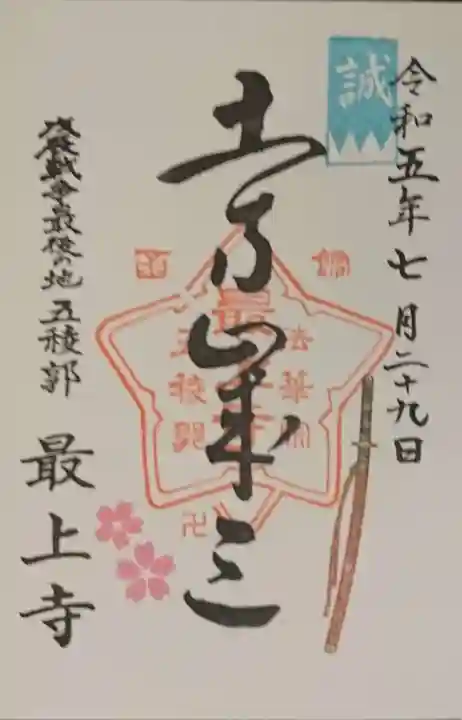 令和五年七月二十九日
誠
土方歳三
最上寺
法華宗
五稜郭
戊辰戦争最後の地 五稜郭
最上寺